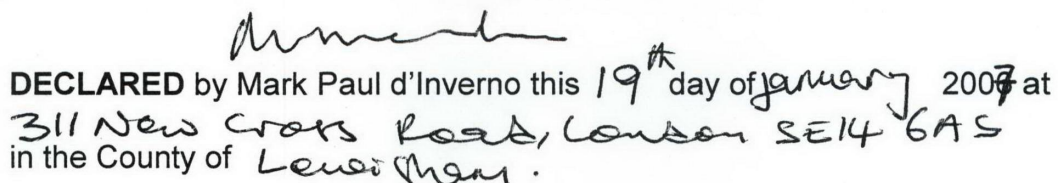 DECLARED by Mark Paul d'Inverno this 19th day of January 2007 at
311 New Cross Road, London SE14 6AS
in the County of Lewisham.